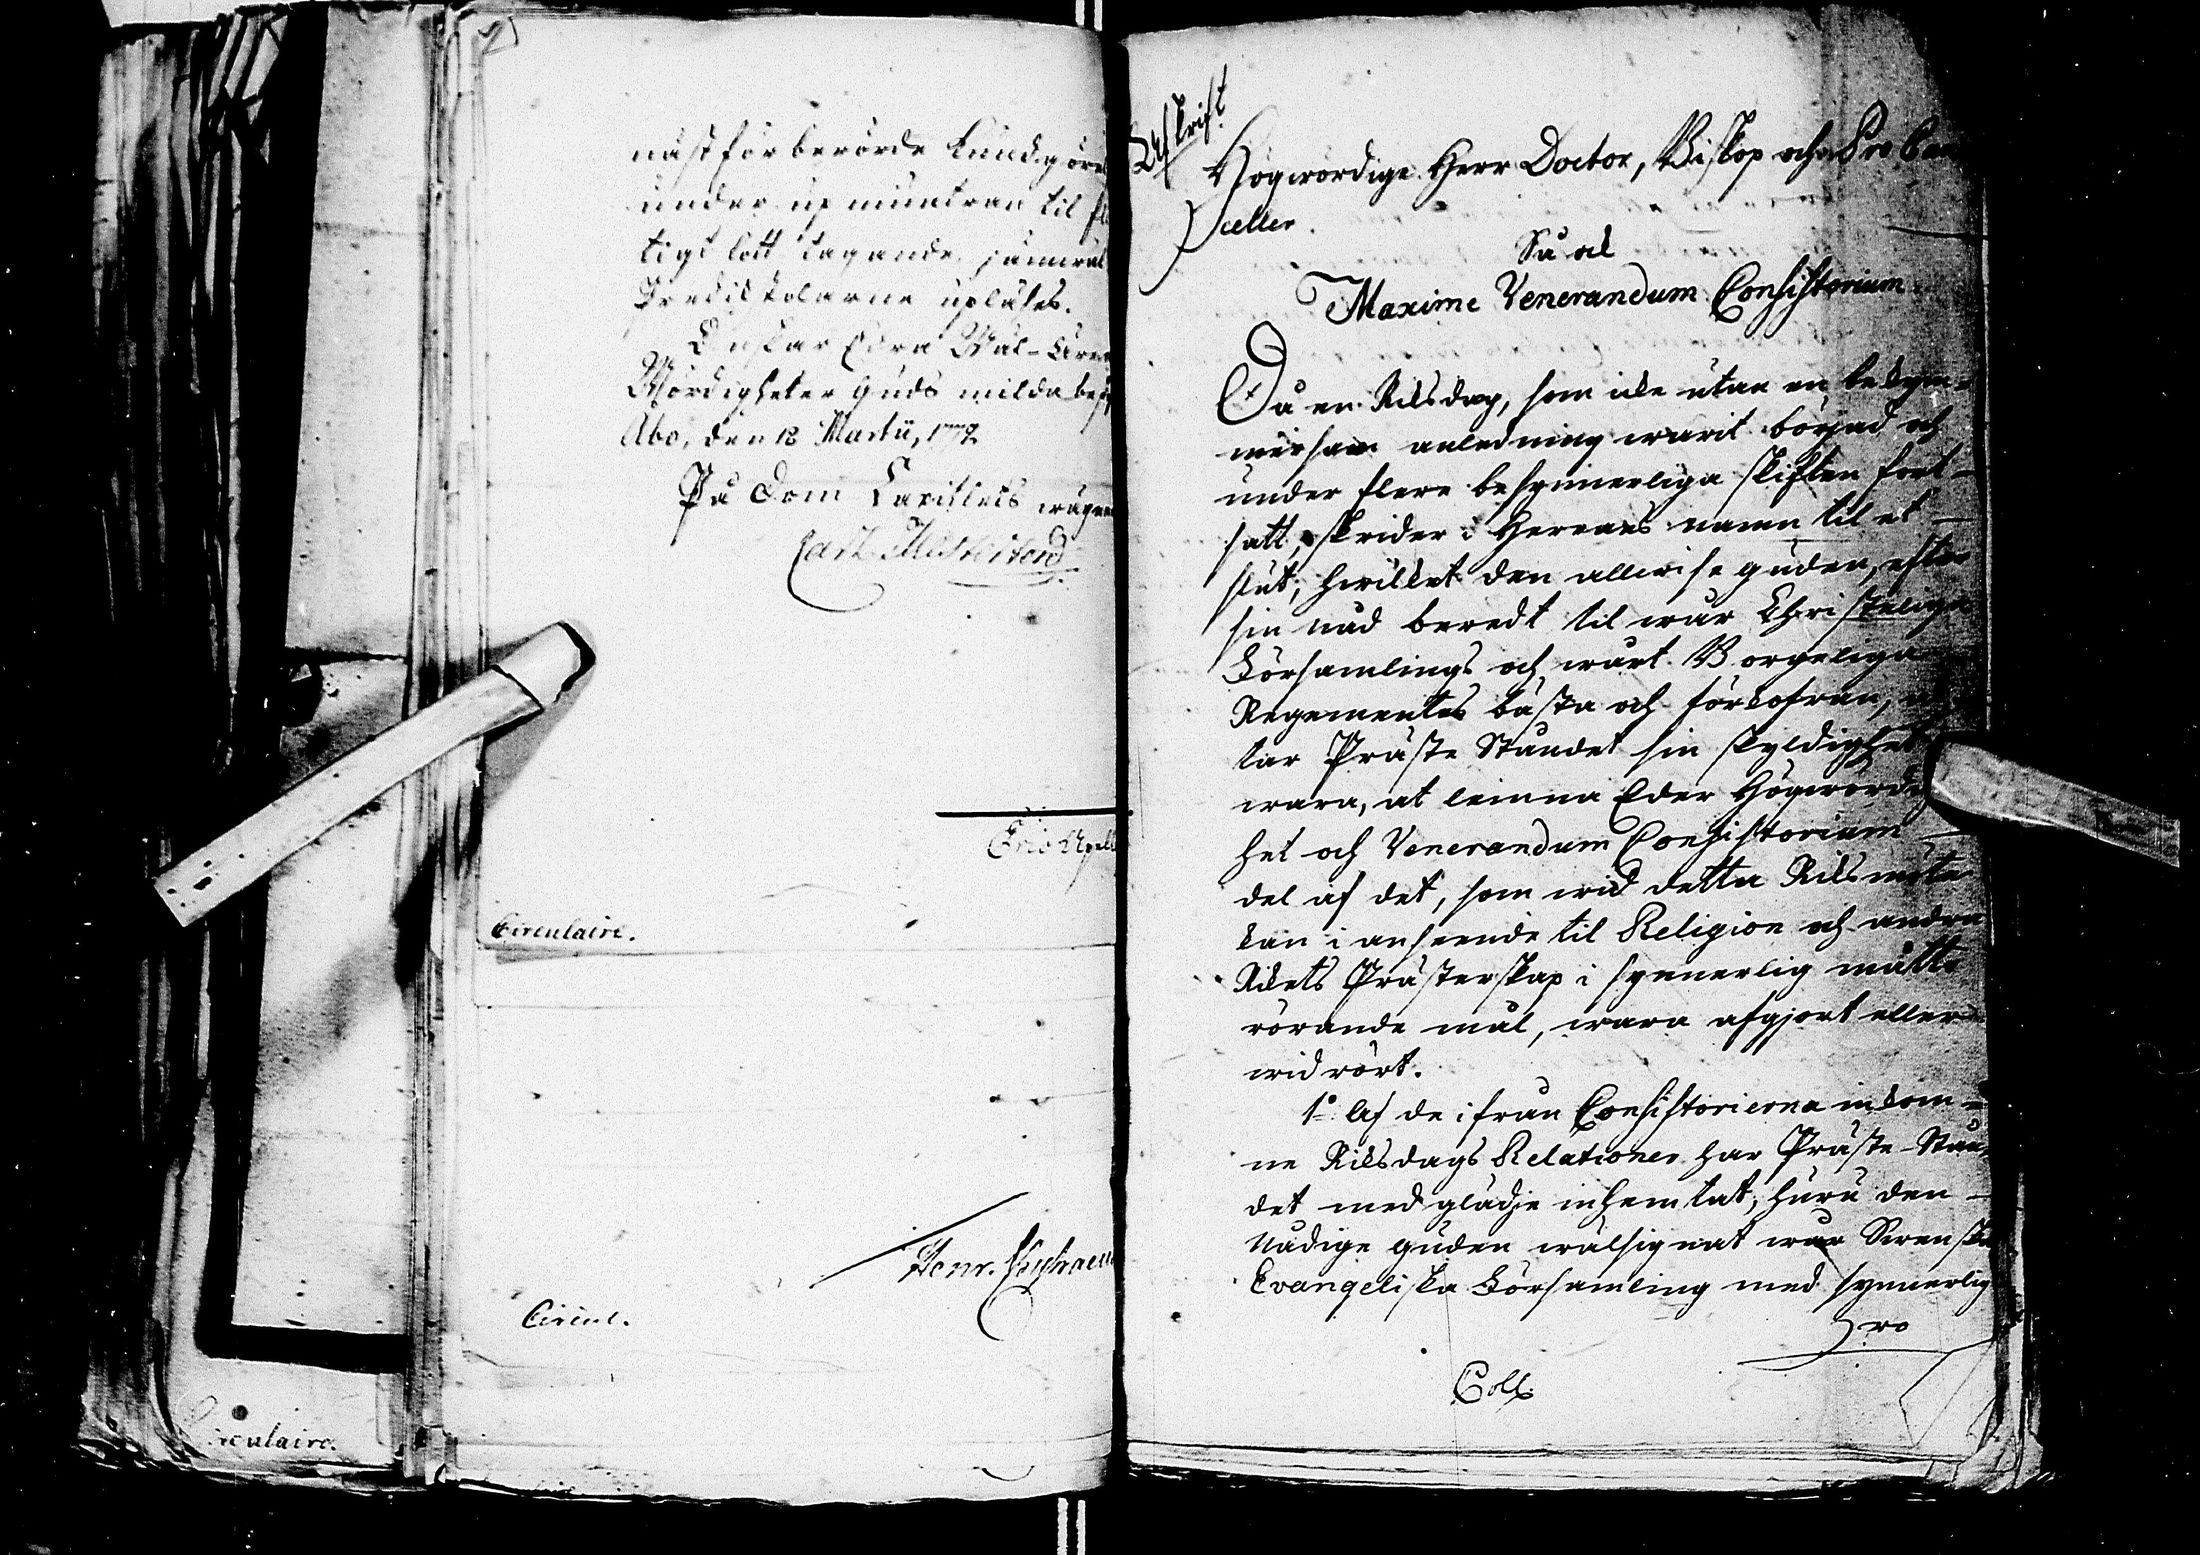 näst för berörde kundgöre
under up muntran til fl
tigt lott tagande, jämwäl
Predikstolarne upläses.
Önskar Edra Wäl-Ären
Wördigheter Guds milda besk
Åbo, den 18 Martii, 1772
På Dom Capitlets wägnar
Carl Mesterton
Circulaire.
Henr.
Circul.
Circulaire.
Afskrift
Högwördige Herr Doctor, Biskop och Pro Can
celler.
Så ock
Maxime Venerandum Consistorium
Då en Riksdag, som icke utan en bekym-
mersam anledning warit börjad och
under flere besynnerliga skiften fort-
satt, skrider i Herrans namn til et
slut, hwilket den allwise guden, efter
sin nåd beredt til wår Christeliga
Församlings och wårt Borgeliga
Regementes bästa och förkofran,
tar Präste Ståndet sin skyldighet
wara, at lemna Eder Högwördig
het och Venerandum Consistorium
del af det, som wid detta Riksmöte
kan i anseende til Religion och andra
Rikets Prästerskap i synnerlig måtto
rörande mål, wara afgjort eller
widrört.
1:o Af de ifrån Consistorierna inkom-
ne Riksdags Relationer har Präste-Stån
det med glädje inhemtat, huru den
Nådige guden wälsignat wår Swenska
Evangeliska Församling med synnerlig
ro
Coll.